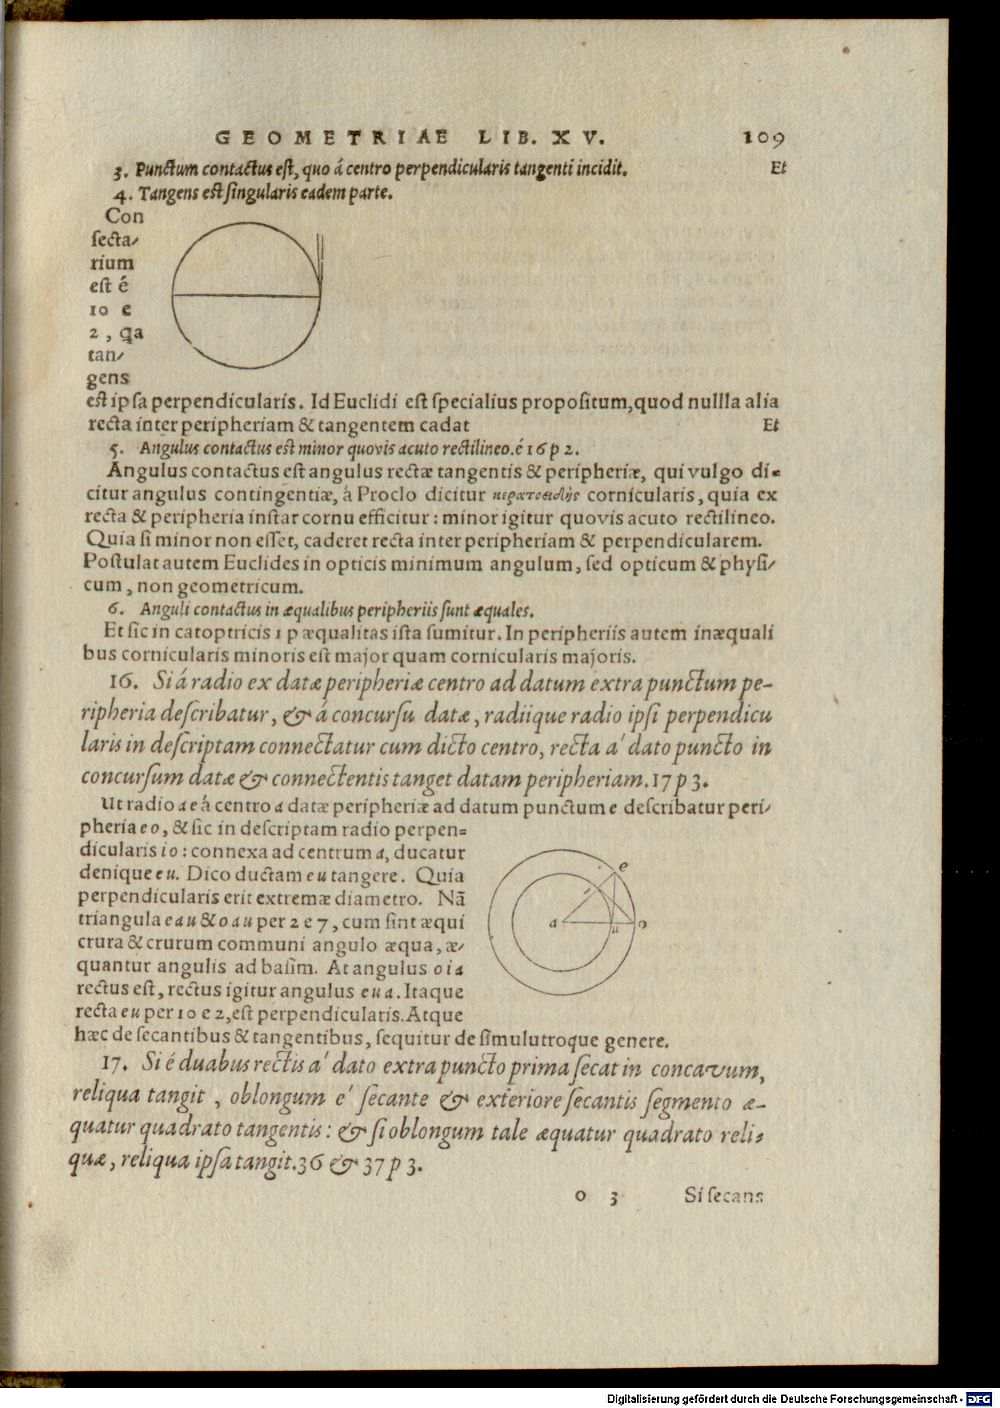 GEOMETRIAE LIB. XV. 109
3. Punctum contactus est, quo á centro perpendicularis tangenti incidit. Et
4. Tangens est singularis eadem parte.
Con
secta/
rium
est é
10 e
2, qa
tan/
gens
est ipsa perpendicularis. Id Euclidi est specialius propositum, quod nullla alia
recta inter peripheriam & tangentem cadat Et
5. Angulus contactus est minor quovis acuto rectilineo. é 16 p 2.
Angulus contactus est angulus rectæ tangentis & peripheriæ, qui vulgo di=
citur angulus contingentiæ, à Proclo dicitur κερατοειδὴς cornicularis, quia ex
recta & peripheria instar cornu efficitur: minor igitur quovis acuto rectilineo.
Quia si minor non esset, caderet recta inter peripheriam & perpendicularem.
Postulat autem Euclides in opticis minimum angulum, sed opticum & physi/
cum, non geometricum.
6. Anguli contactus in æqualibus peripheriis sunt æquales.
Et sic in catoptricis 1 p æqualitas ista sumitur. In peripheriis autem inæquali
bus cornicularis minoris est major quam cornicularis majoris.
16. Si á radio ex datæ peripheriæ centro ad datum extra punctum pe-
ripheria describatur, & á concursu datæ, radiique radio ipsi perpendicu
laris in descriptam connectatur cum dicto centro, recta a' dato puncto in
concursum datæ & connectentis tanget datam peripheriam. 17 p 3.
Ut radio a e á centro a datæ peripheriæ ad datum punctum e describatur peri/
pheria e o, & sic in descriptam radio perpen=
dicularis i o: connexa ad centrum a, ducatur
denique e u. Dico ductam e u tangere. Quia
perpendicularis erit extremæ diametro. Nā
triangula e a u & o a u per 2 e 7, cum sint æqui
crura & crurum communi angulo æqua, æ/
quantur angulis ad basim. At angulus o i a
rectus est, rectus igitur angulus e u a. Itaque
recta e u per 10 e 2, est perpendicularis. Atque
hæc de secantibus & tangentibus, sequitur de simul utroque genere.
a e u o
17. Si é duabus rectis a' dato extra puncto prima secat in concavum,
reliqua tangit, oblongum e' secante & exteriore secantis segmento æ-
quatur quadrato tangentis: & si oblongum tale æquatur quadrato reli-
quæ, reliqua ipsa tangit. 36 & 37 p 3.
o 3 Si secans
Digitalisierung gefördert durch die Deutsche Forschungsgemeinschaft - DFG